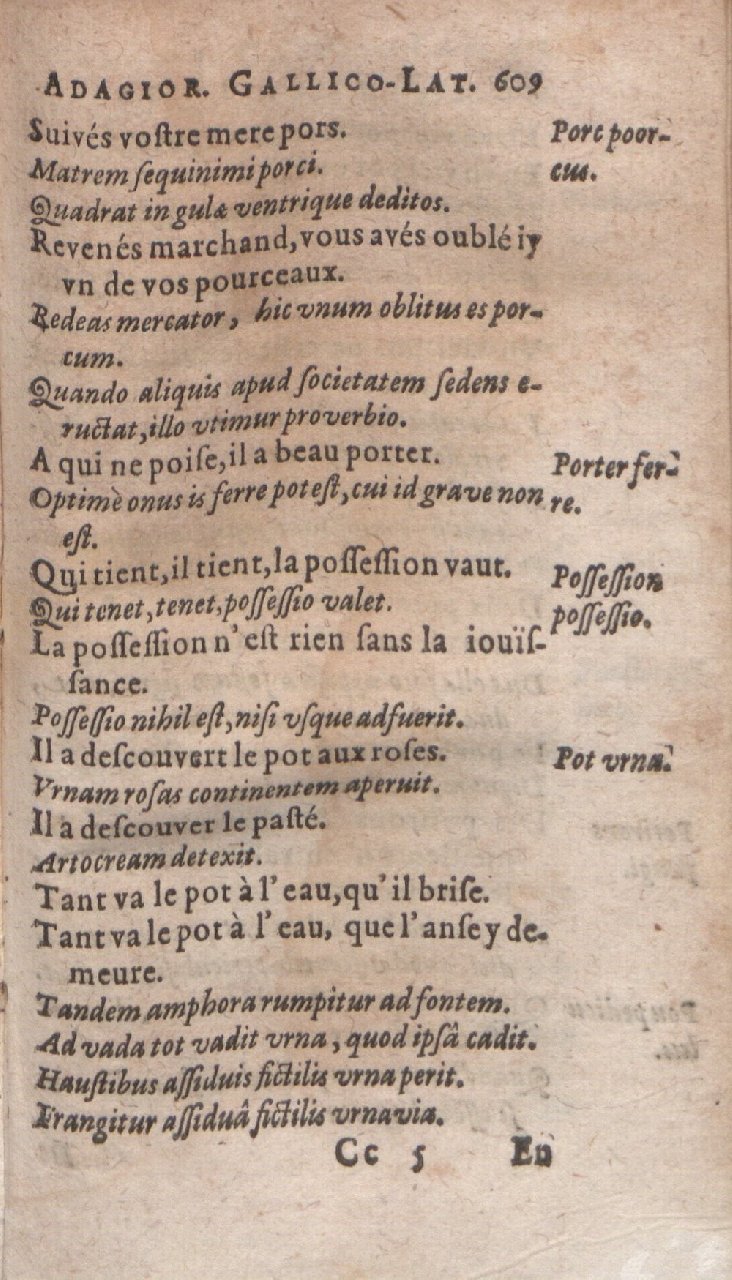 ADAGIOR. GALLICO-LAT. 609
Suivés vostre mere pors.
Porc poor-
cus.
Matrem sequinimi porci.
Quadrat in gulæ ventrique deditos.
Revenés marchand, vous avés oublé iy
vn de vos pourceaux.
Redeas mercator, hic vnum oblitus es por-
cum.
Quando aliquis apud societatem sedens e-
ructat, illo vtimur proverbio.
A qui ne poise, il a beau porter.
Porter fer-
re.
Optimè onus is ferre potest, cui id grave non
est.
Qui tient, il tient, la possession vaut.
Possession
possessio.
Qui tenet, tenet, possessio valet.
La possession n'est rien sans la iouïs-
sance.
Possessio nihil est, nisi vsque adfuerit.
Il a descouvert le pot aux roses.
Pot vrna.
Vrnam rosas continentem aperuit.
Il a descouver le pasté.
Artocream detexit.
Tant va le pot à l'eau, qu'il brise.
Tant va le pot à l'eau, que l'anse y de-
meure.
Tandem amphora rumpitur ad fontem.
Ad vada tot vadit vrna, quod ipsâ cadit.
Haustibus assiduis fictilis vrna perit.
Frangitur assiduâ fictilis vrna via.
Cc 5 En